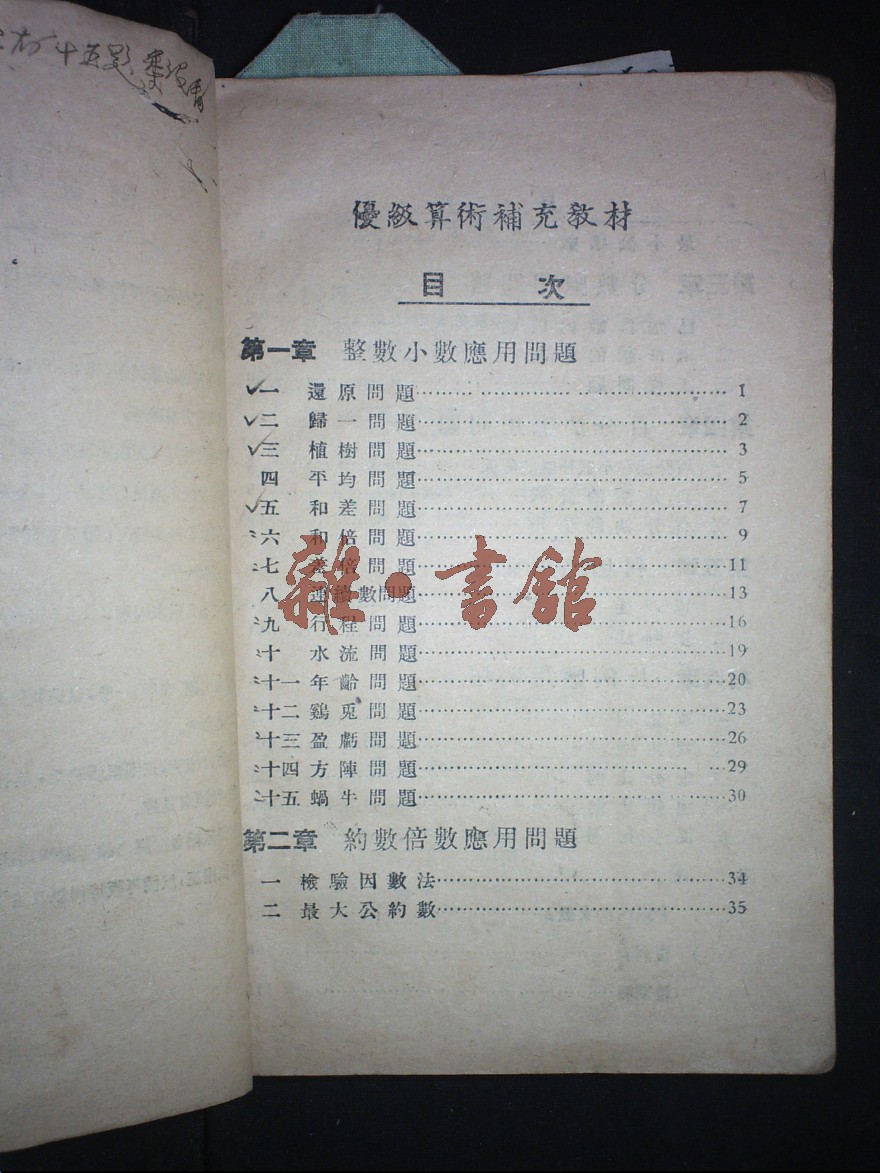 十五题
優級算術補充教材
目次
第一章 整數小數應用問題
一 還原問題 1
二 歸一問題 2
三 植樹問題 3
四 平均問題 5
五 和差問題 7
六 和倍問題 9
七 差倍問題 11
八 連續數問題 13
九 行程問題 16
十 水流問題 19
十一 年齡問題 20
十二 鷄兎問題 23
十三 盈虧問題 26
十四 方陣問題 29
十五 蝸牛問題 30
雜·書館
第二章 約數倍數應用問題
一 檢驗因數法 34
二 最大公約數 35